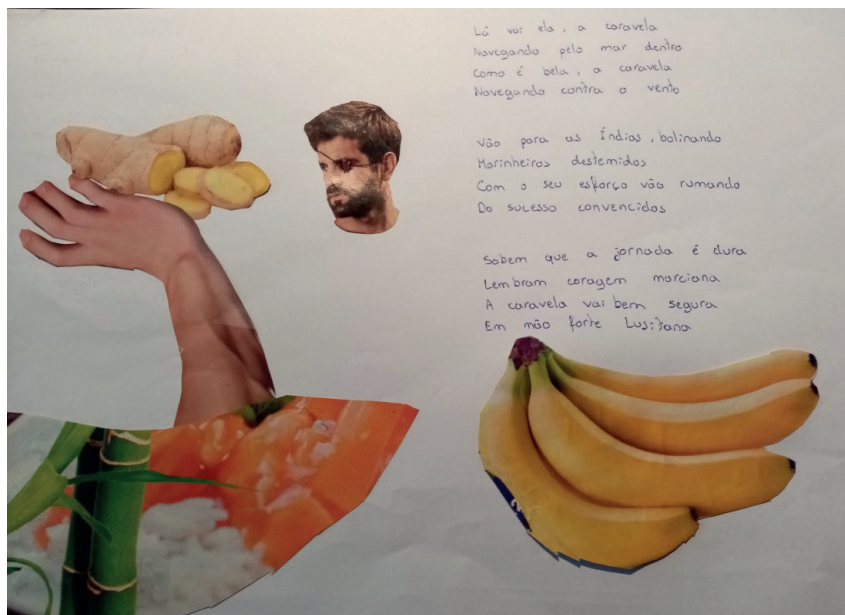 Lá vai ela, a caravela
Navegando pelo mar dentro
Como é bela, a caravela
Navegando contra o vento
Vão para as Índias, bolinando
Marinheiros destemidos
Com o seu esforço vão rumando
Do sucesso convencidos
Sabem que a jornada é dura
Lembram coragem marciana
A caravela vai bem segura
Em mão forte Lusitana